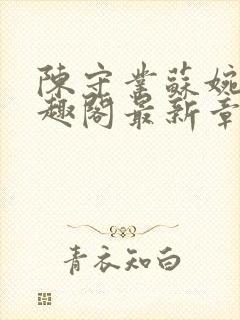 陳守業蘇婉
趣閣最新章
青衣知白